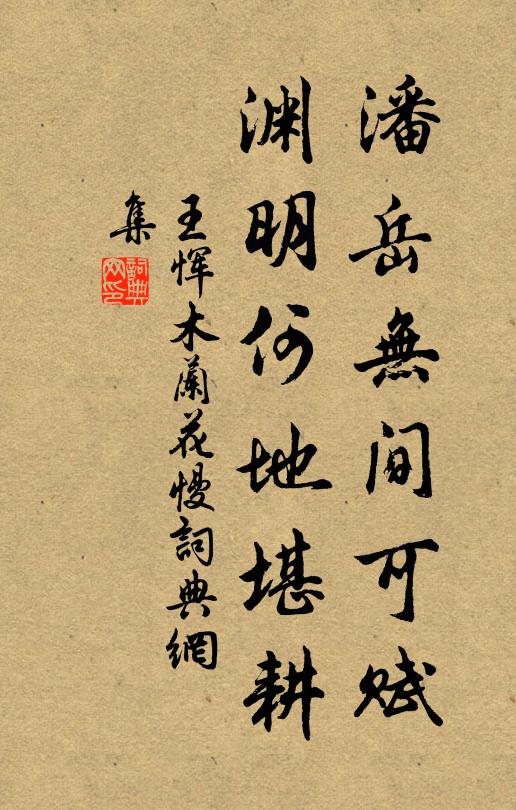 潘岳無間可賦
淵明何地堪耕
王惲木蘭花慢詞典網
集
詞典網印